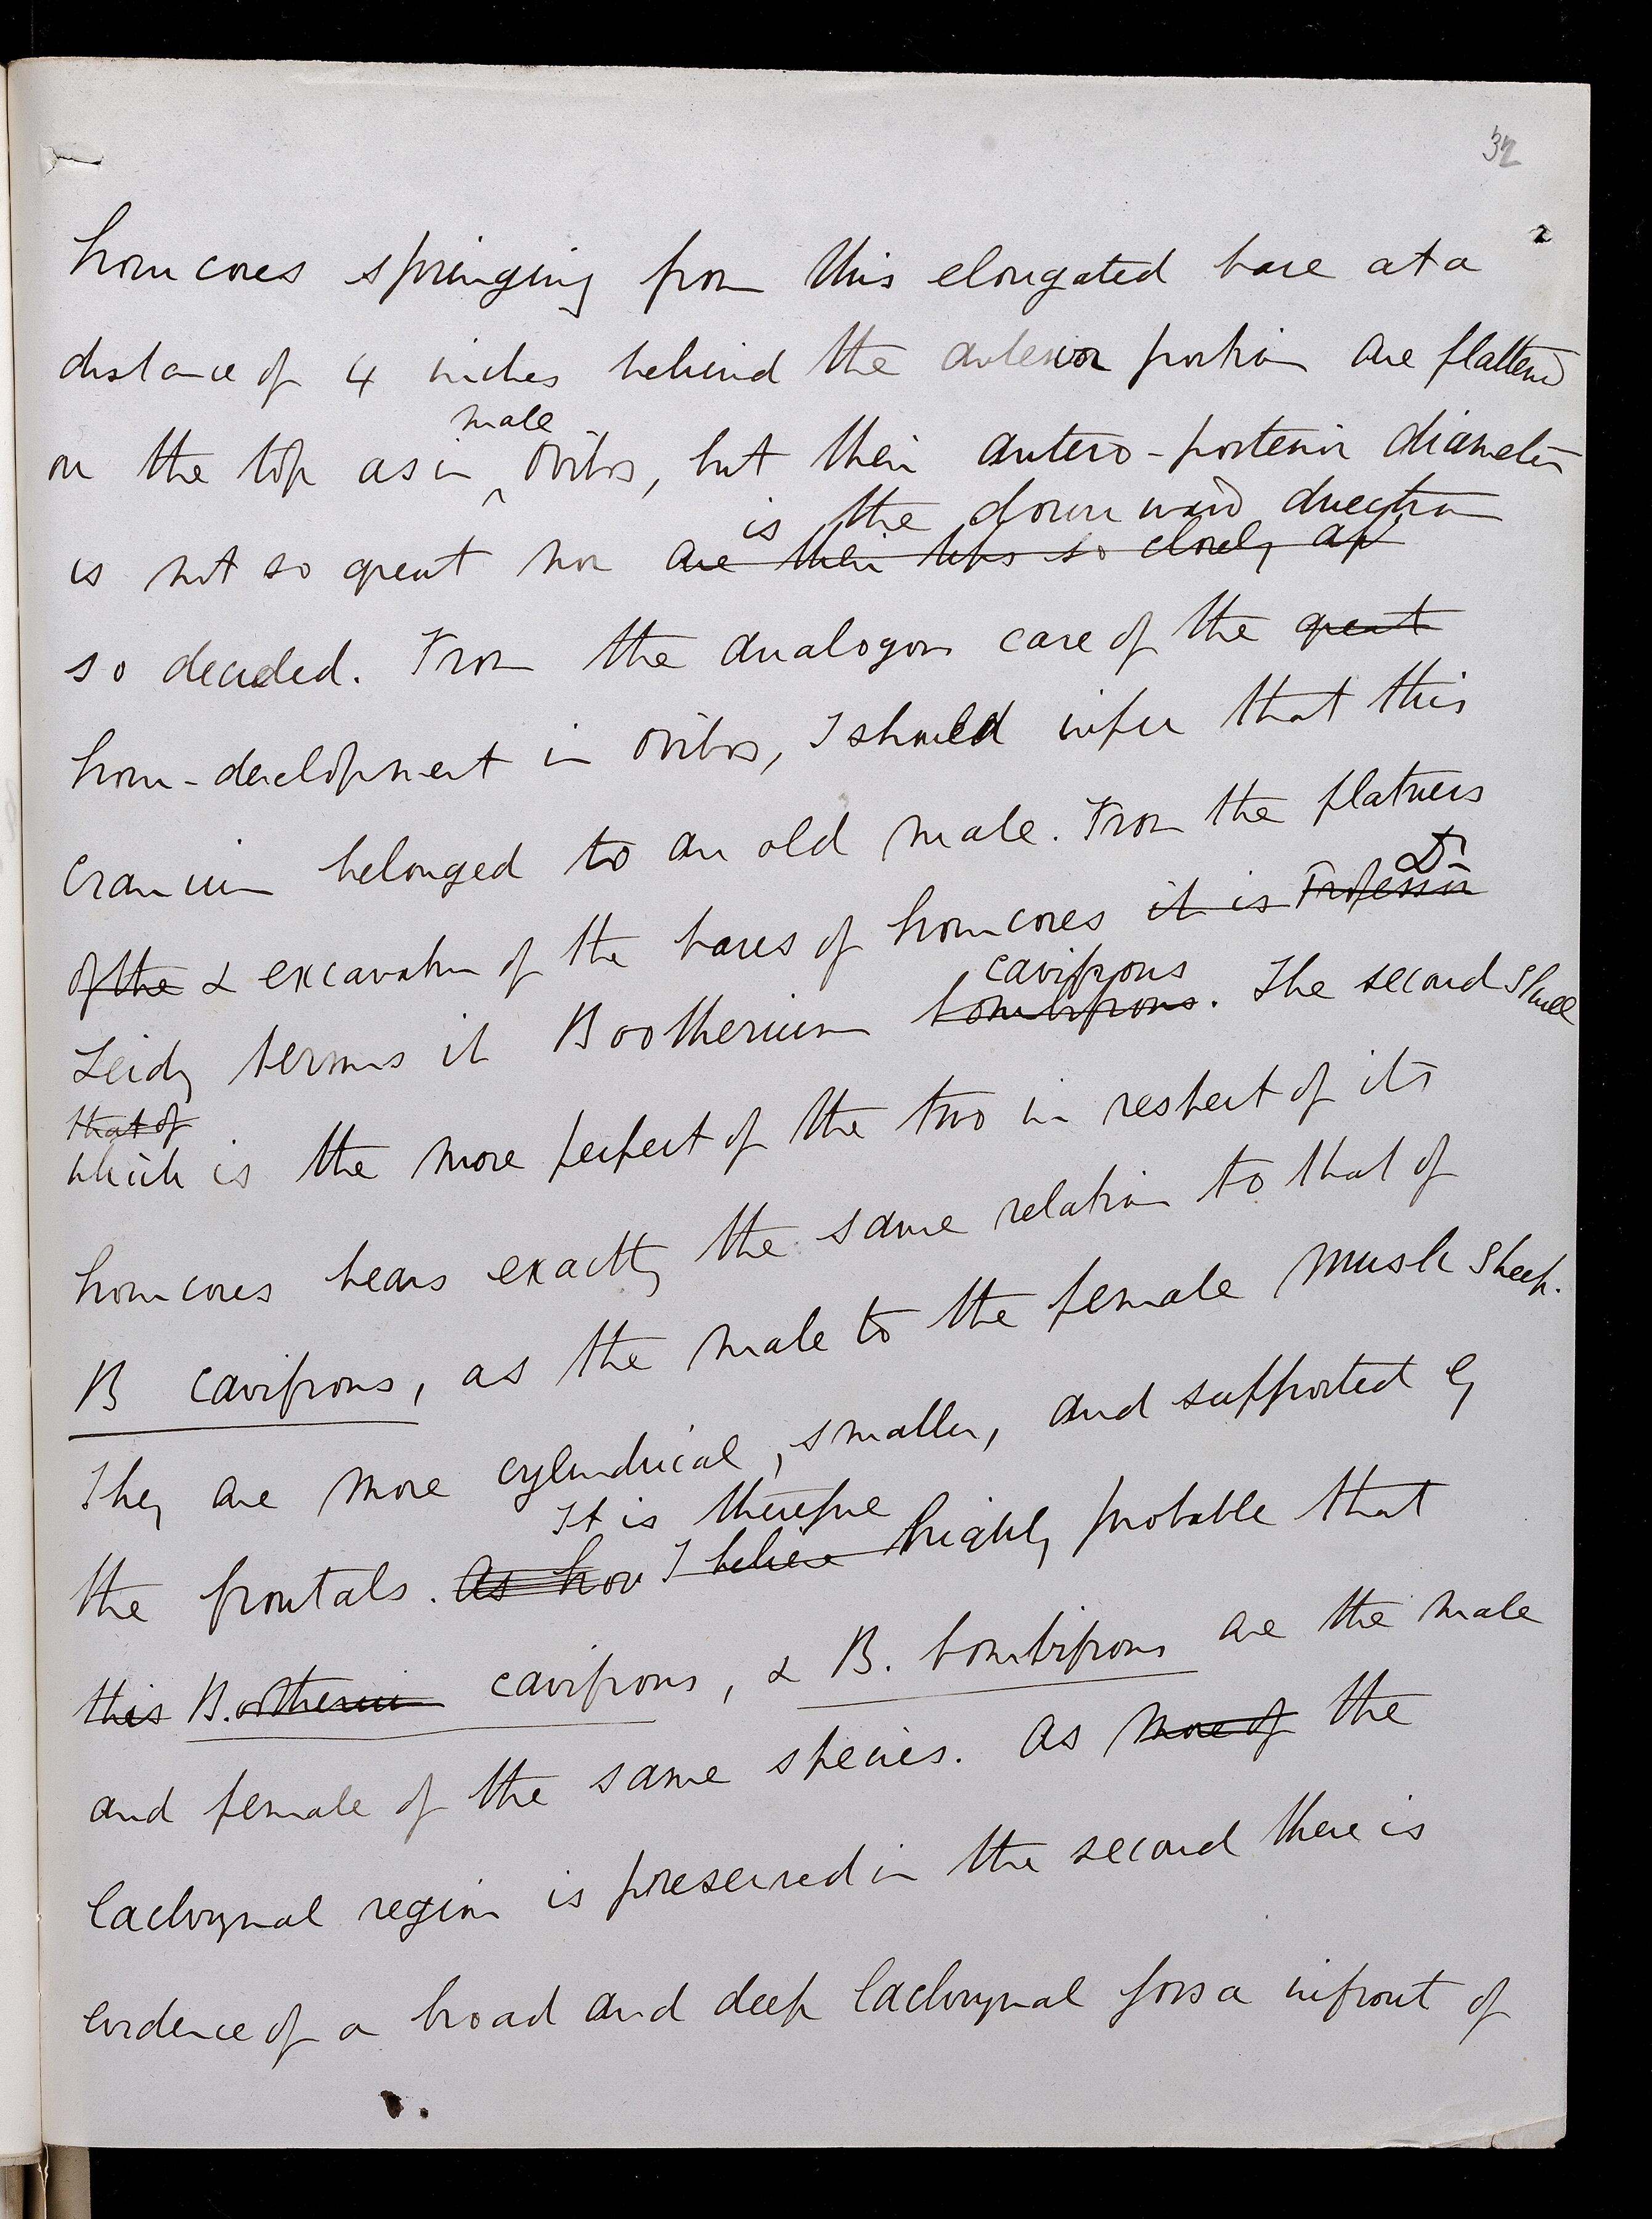 32
2
horn cores springing from this elongated base at a
distance of 4 inches behind the anterior portion are flattened
male
on the top as in ^ Ovibos, but their antero-posterior diameter
is the downward direction
is not so great nor are their tips so closely ap
so decided. From the analogous case of the great
horn-development in Ovibos, I should infer that this
cranium belonged to an old male. From the flatness
Dr
of the & excavation of the bases of horncores it is Professor
cavifrons
Leidy terms it Bootherium bombifrons. The second skull
that of
which is the more perfect of the two in respect of its
horncores bears exactly the same relation to that of
B cavifrons, as the male to the female musk sheep.
They are more cylindrical, smaller, and supported by
It is therefore
the frontals. As how I believe highly probable that
this B. ootherium cavifrons, & B. bombifrons are the male
and female of the same species. As more of the
lachrymal region is preserved in the second there is
evidence of a broad and deep lachrymal fossa infront of